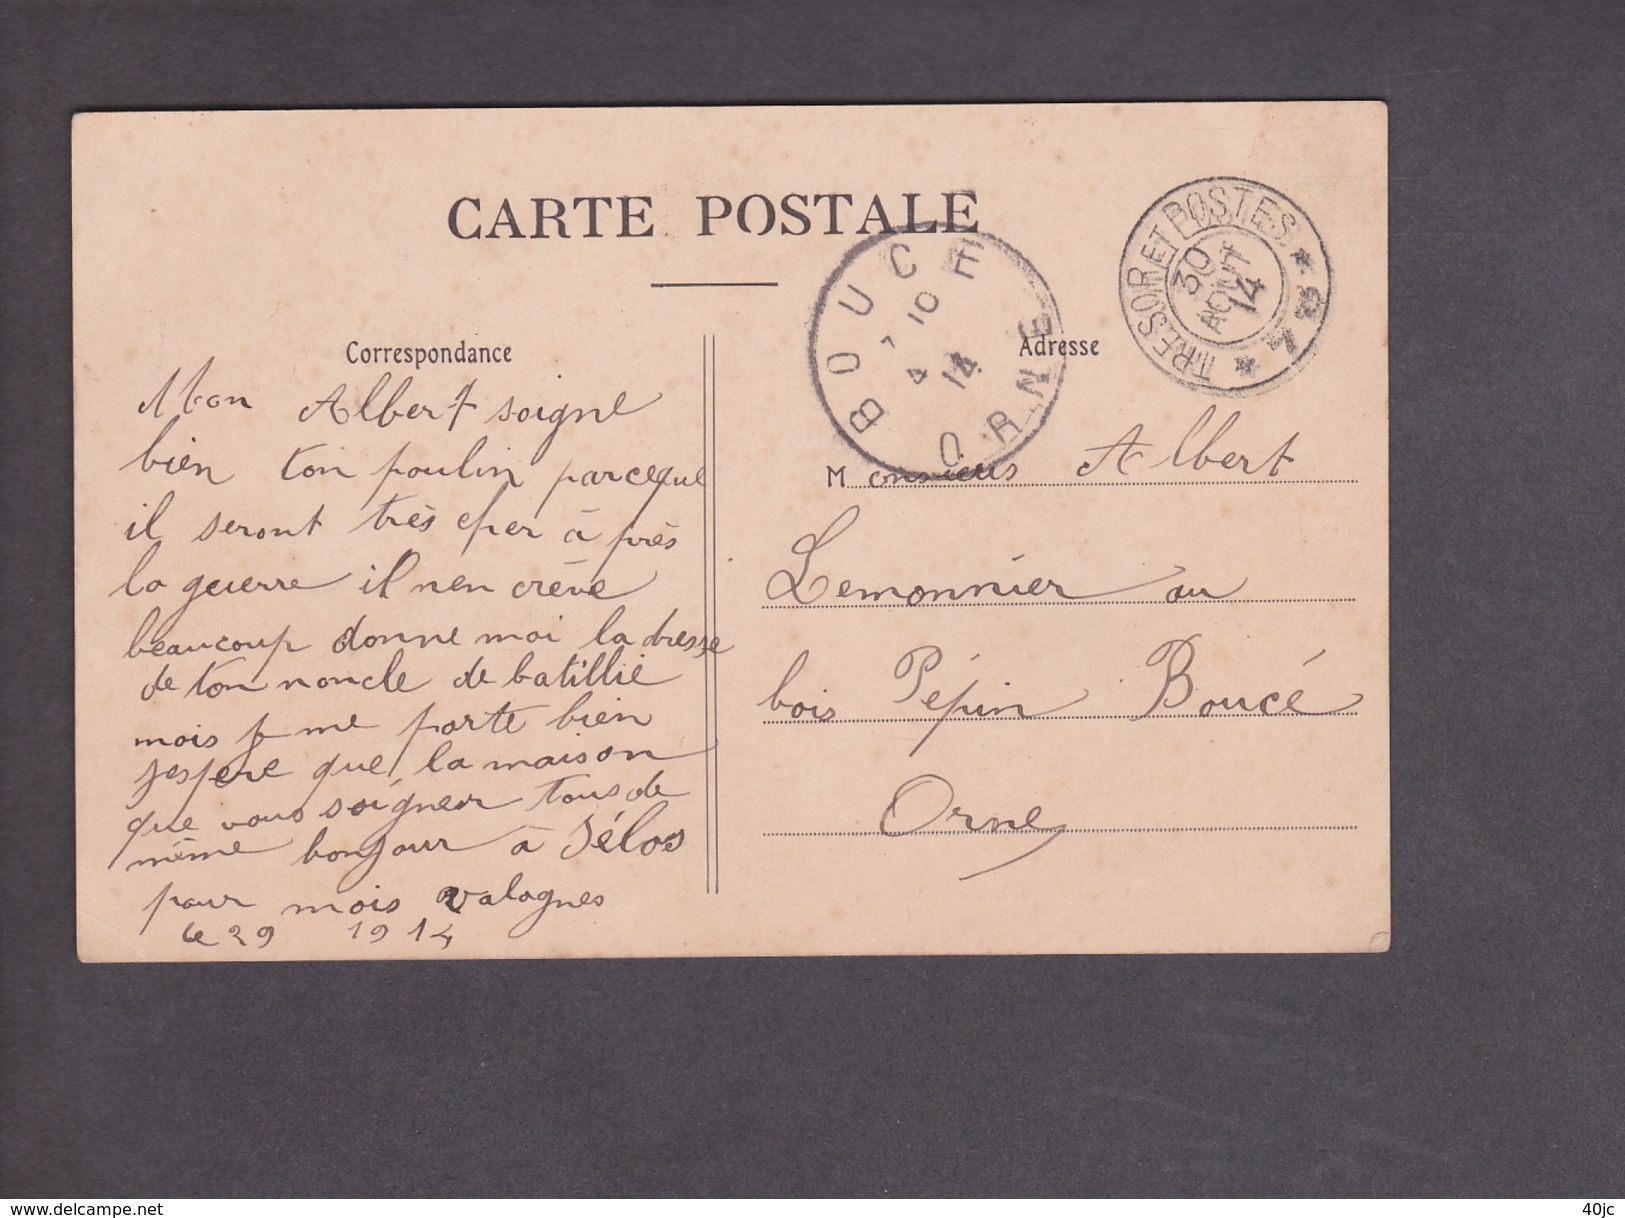 CARTE POSTALE
BOUCE ORNE
7 10
4 14
TRESOR ET POSTES * 78 *
30
AOUT
14
Correspondance
Adresse
Mon Albert soigne
bien ton poulin parceque
il seront très cher à près
la guerre il nen crève
beaucoup donne moi la dresse
de ton noncle de batillie
mois je me porte bien
jespere que la maison
que vous soigner tous de
même bonjour à
pour mois valognes
le 29 1914
Monsieus Albert
Lemonnier au
bois Pépin Boucé
Orne
delcampe.net
40jc